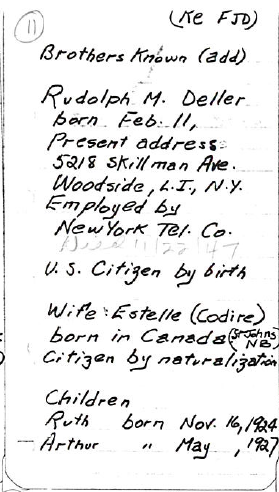 11
(Re FJD)
Brothers Known (add)
Rudolph M. Deller
born Feb. 11,
Present address:
5218 Skillman Ave.
Woodside, L.I., N.Y.
Employed by
New York Tel. Co.
Died 11/22/47
U.S. Citizen by birth
Wife: Estelle (Codire)
born in Canada (St Johns NB)
Citizen by naturalization
Children
Ruth born Nov. 16, 1924
— Arthur " May , 1927